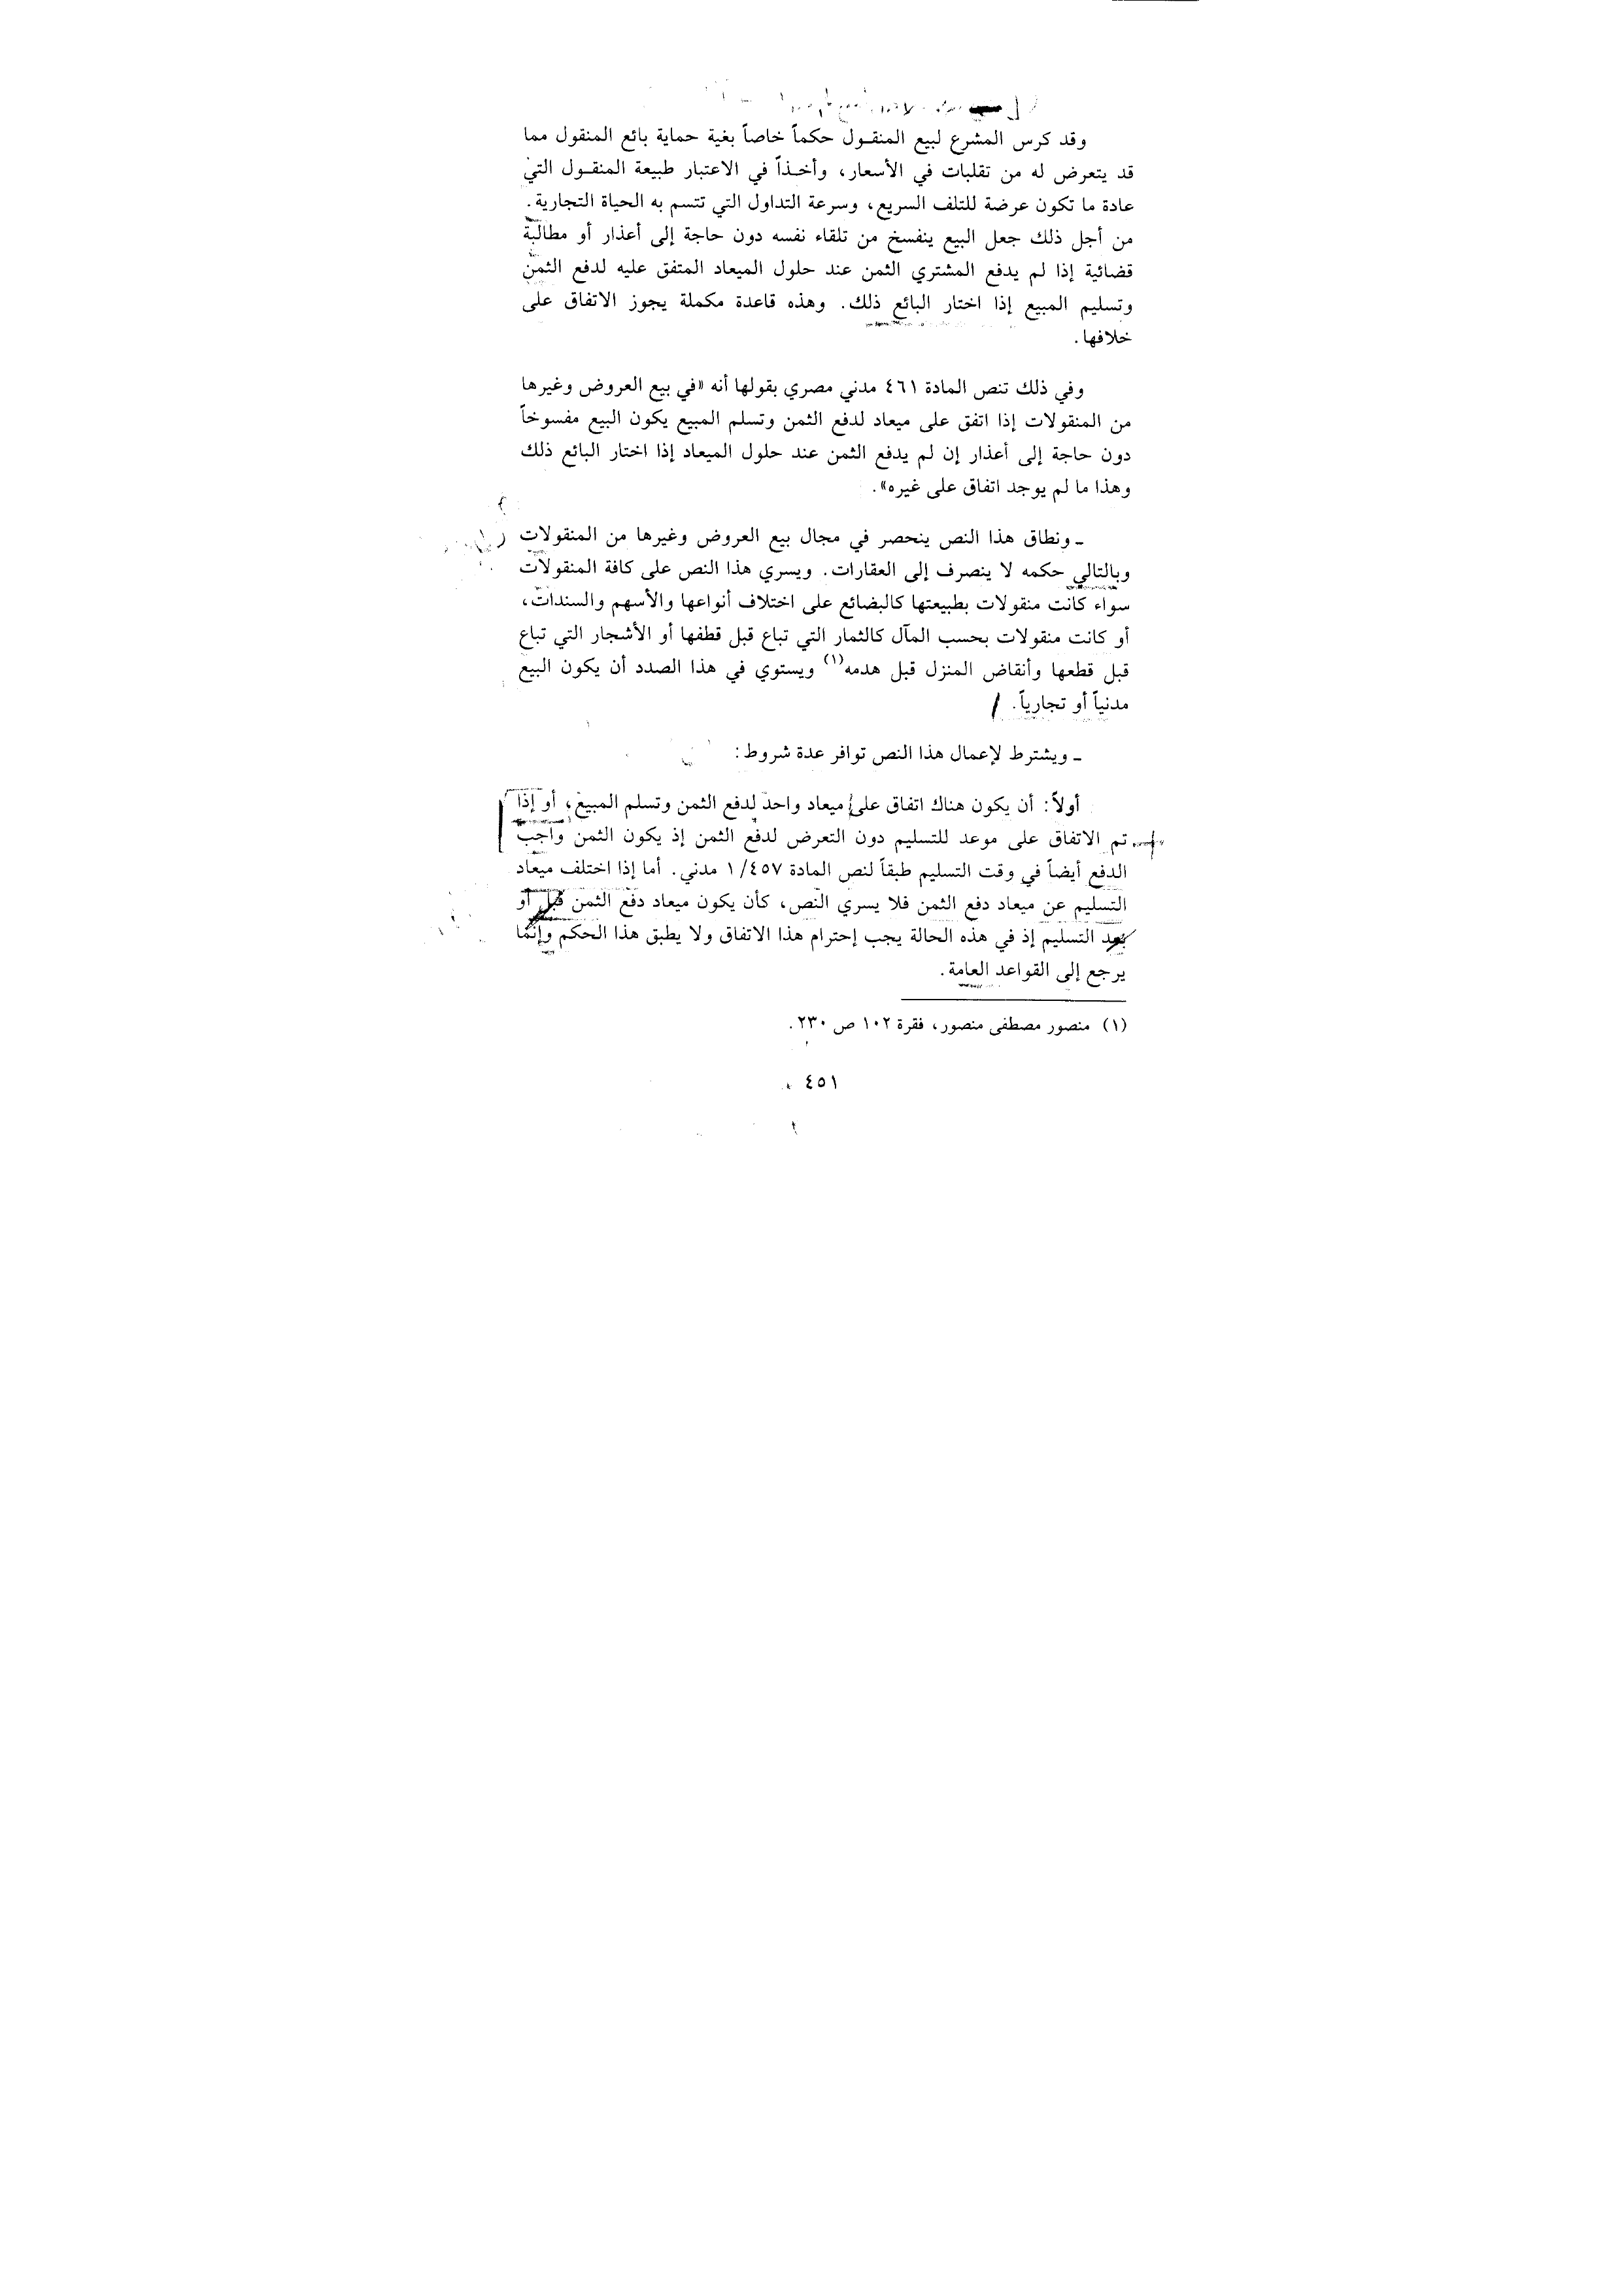 وقد كرس المشرع لبيع المنقـول حكماً خاصاً بغية حماية بائع المنقول مما
قد يتعرض له من تقلبات في الأسعار، وأخـذاً في الاعتبار طبيعة المنقـول التي
عادة ما تكون عرضة للتلف السريع، وسرعة التداول التي تتسم به الحياة التجارية.
من أجل ذلك جعل البيع ينفسخ من تلقاء نفسه دون حاجة إلى أعذار أو مطالبة
قضائية إذا لم يدفع المشتري الثمن عند حلول الميعاد المتفق عليه لدفع الثمن
وتسليم المبيع إذا اختار البائع ذلك. وهذه قاعدة مكملة يجوز الاتفاق على
خلافها.
وفي ذلك تنص المادة ٤٦١ مدني مصري بقولها أنه «في بيع العروض وغيرها
من المنقولات إذا اتفق على ميعاد لدفع الثمن وتسلم المبيع يكون البيع مفسوخاً
دون حاجة إلى أعذار إن لم يدفع الثمن عند حلول الميعاد إذا اختار البائع ذلك
وهذا ما لم يوجد اتفاق على غيره».
ـ ونطاق هذا النص ينحصر في مجال بيع العروض وغيرها من المنقولات
وبالتالي حكمه لا ينصرف إلى العقارات. ويسري هذا النص على كافة المنقولات
سواء كانت منقولات بطبيعتها كالبضائع على اختلاف أنواعها والأسهم والسندات،
أو كانت منقولات بحسب المآل كالثمار التي تباع قبل قطفها أو الأشجار التي تباع
قبل قطعها وأنقاض المنزل قبل هدمه(١) ويستوي في هذا الصدد أن يكون البيع
مدنياً أو تجارياً.
ـ ويشترط لإعمال هذا النص توافر عدة شروط:
أولاً: أن يكون هناك اتفاق على ميعاد واحد لدفع الثمن وتسلم المبيع، أو إذا
تم الاتفاق على موعد للتسليم دون التعرض لدفع الثمن إذ يكون الثمن واجب
الدفع أيضاً في وقت التسليم طبقاً لنص المادة ١/٤٥٧ مدني. أما إذا اختلف ميعاد
التسليم عن ميعاد دفع الثمن فلا يسري النص، كأن يكون ميعاد دفع الثمن قبل أو
بعد التسليم إذ في هذه الحالة يجب إحترام هذا الاتفاق ولا يطبق هذا الحكم وإنما
يرجع إلى القواعد العامة.
(١) منصور مصطفى منصور، فقرة ١٠٢ ص ٢٣٠.
٤٥١